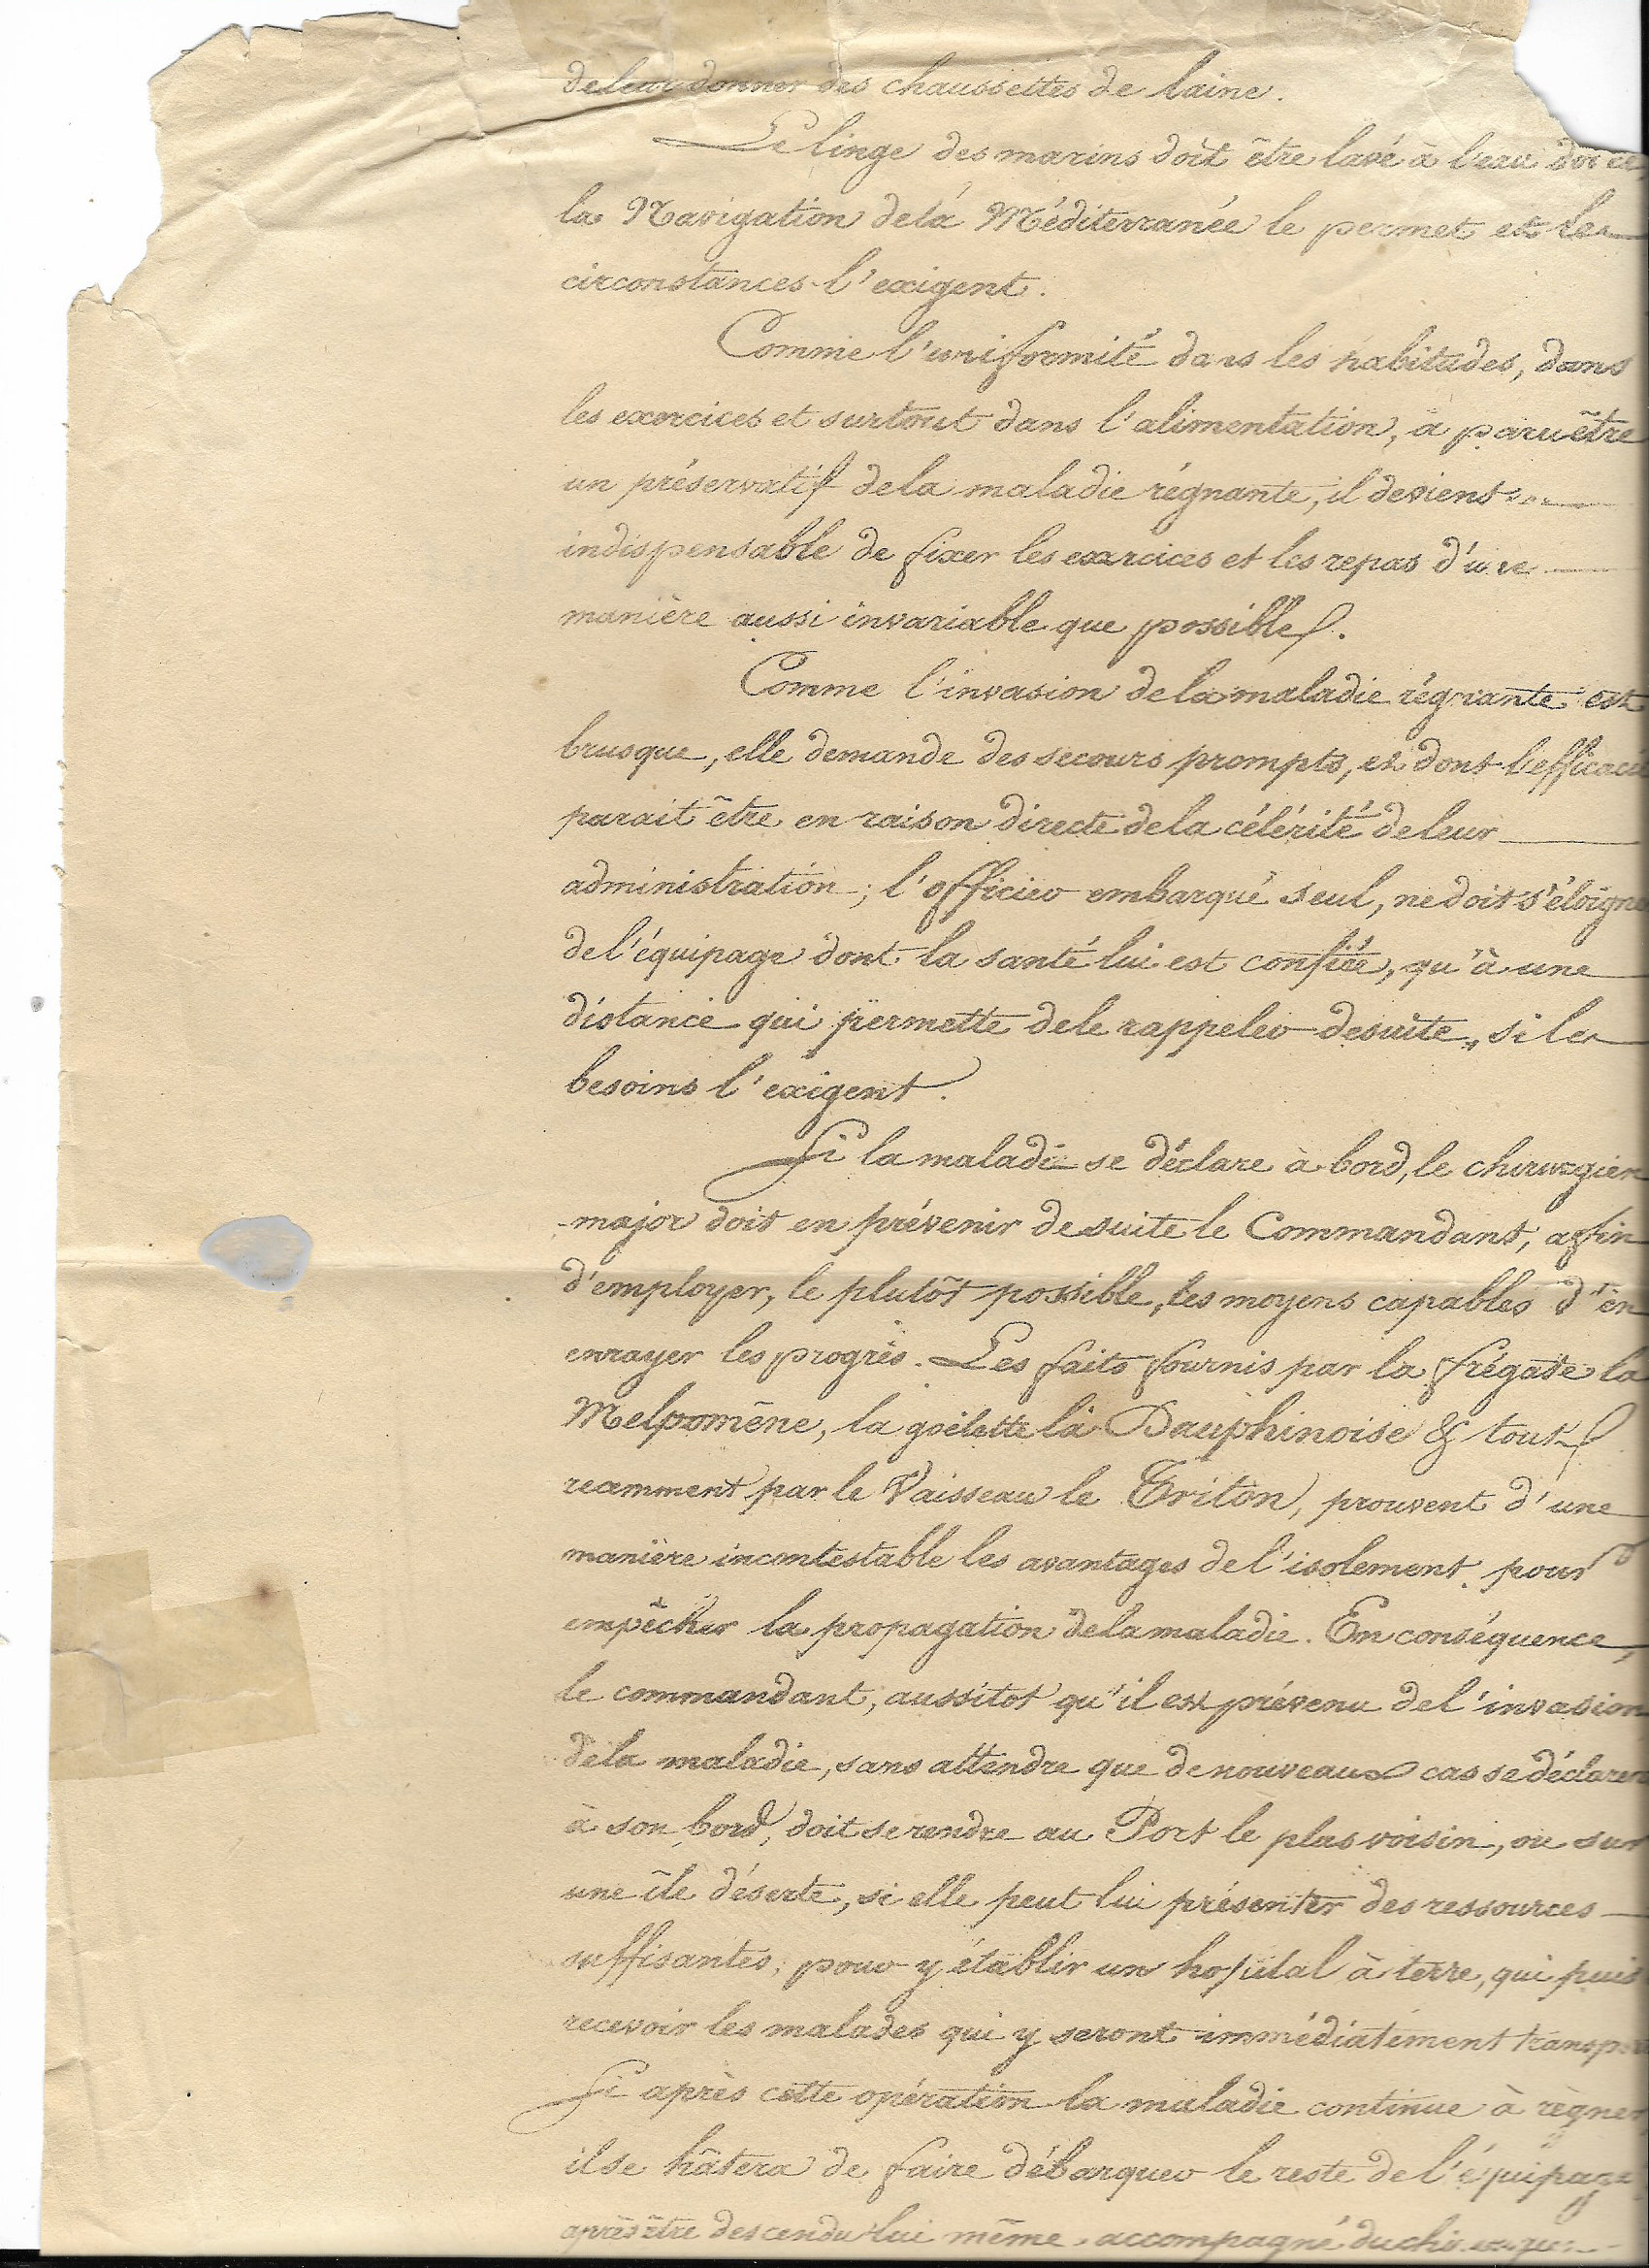 de leur donner des chaussettes de laine.
Le linge des marins doit être lavé à l'eau douce
la Navigation de la Méditerranée le permet et les
circonstances l'exigent.
Comme l'uniformité dans les habitudes, dans
les exercices et surtout dans l'alimentation, a paru être
un préservatif de la maladie régnante, il devient
indispensable de fixer les exercices et les repas d'une
manière aussi invariable que possible.
Comme l'invasion de la maladie régnante est
brusque, elle demande des secours prompts, et dont l'efficaci
parait être en raison directe de la célérité de leur
administration ; l'officier embarqué seul, ne doit s'éloigne
de l'équipage dont la santé lui est confiée, qu'à une
distance qui permette de le rappeler desuite, si les
besoins l'exigent.
Si la maladie se déclare à bord, le chirurgien
major doit en prévenir desuite le Commandant, affin
d'employer, le plutôt possible, les moyens capables d'en
enrayer les progrès. Les faits fournis par la frégate la
Melpomène, la goëlette la Dauphinoise & tout
recemment par le Vaisseau le Triton, prouvent d'une
manière incontestable les avantages de l'isolement pour
empêcher la propagation de la maladie. En conséquence,
le commandant, aussitot qu'il est prévenu de l'invasion
de la maladie, sans attendre que de nouveaux cas se déclaren
à son bord, doit se rendre au Port le plus voisin, ou sur
une île déserte, si elle peut lui présenter des ressources
suffisantes, pour y établir un hopital à terre, qui puis
recevoir les malades qui y seront immédiatement transpor
Si après cette opération la maladie continue à règner
il se hâtera de faire débarquer le reste de l'équipage
après être descendu lui même, accompagné du chirurgien